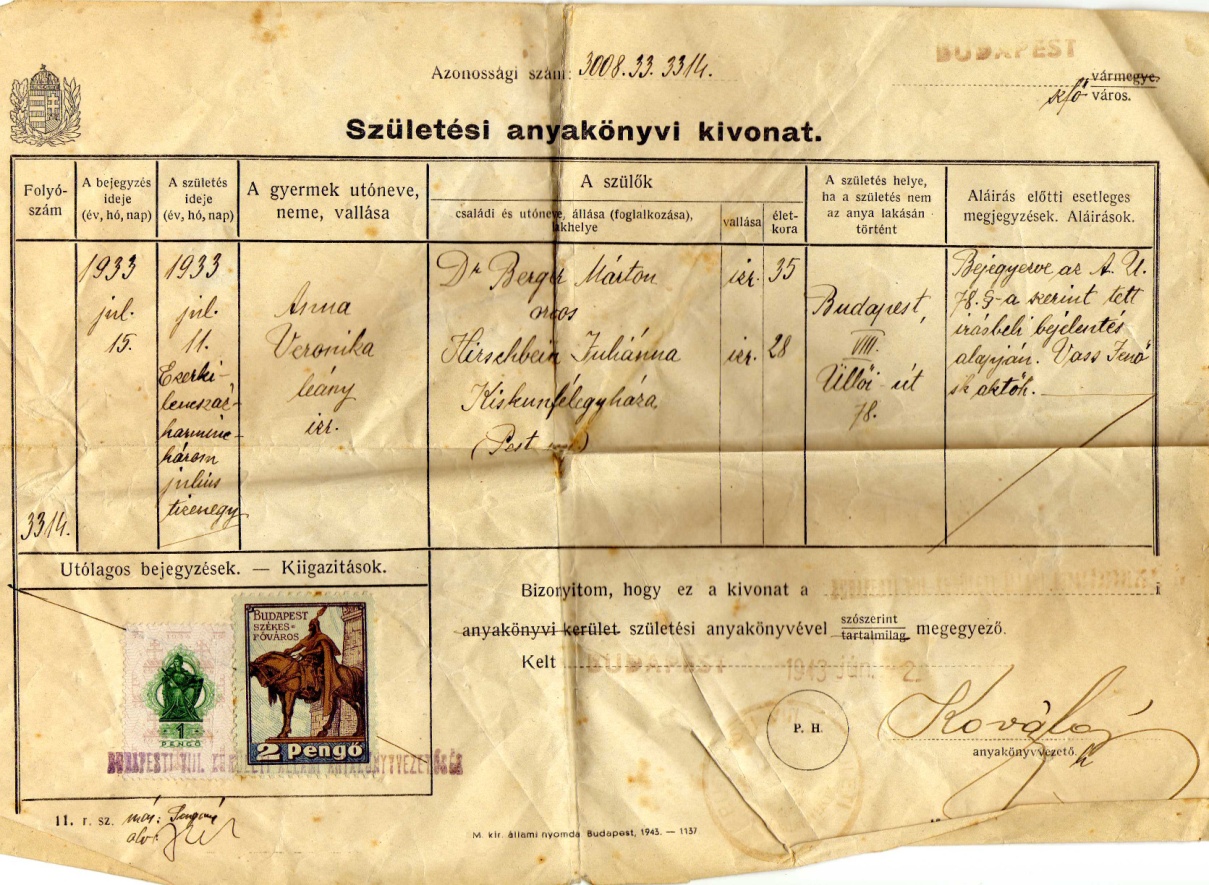 BUDAPEST
Azonossági szám: 3008.33.3314.
vármegye
város.
Születési anyakönyvi kivonat.
Folyó-
szám
A bejegyzés
ideje
(év, hó, nap)
A születés
ideje
(év, hó, nap)
A gyermek utóneve,
neme, vallása
A szülők
családi és utóneve, állása (foglalkozása),
lakhelye
vallása
élet-
kora
A születés helye,
ha a születés nem
az anya lakásán
történt
Aláírás előtti esetleges
megjegyzések. Aláírások.
3314.
1933
jul.
15.
1933
jul.
11.
Ezerki-
lencszáz-
harminc-
három
július
tizenegy
Anna
Veronika
leány
izr.
Dr Berger Márton
orvos
Hirschbein Juliánna
Kiskunfélegyháza
(Pest
izr.
izr.
35
28
Budapest,
VIII.
Üllői-út
78.
Bejegyezve az A. U.
78. §-a szerint tett
írásbeli bejelentés
alapján. Vass Jenő
Utólagos bejegyzések. — Kiigazítások.
BUDAPEST
SZÉKES=
FŐVÁROS
1
PENGŐ
2 Pengő
BUDAPESTI VIII. KERÜLETI ÁLLAMI ANYAKÖNYVVEZETŐSÉG
Bizonyitom, hogy ez a kivonat a
anyakönyvi kerület születési anyakönyvével szószerint
tartalmilag megegyező.
Kelt BUDAPEST 1943 jún. 2
P. H.
anyakönyvvezető.
11. r. sz.
M. kir. állami nyomda Budapest, 1943. — 1137